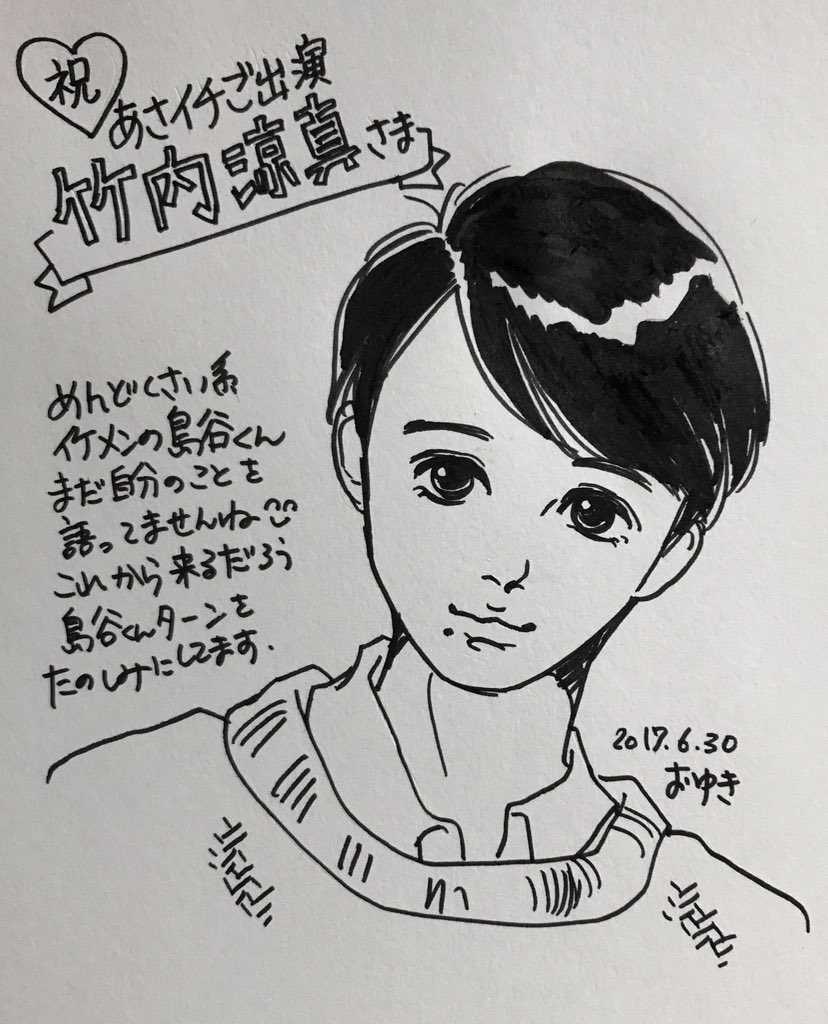 祝
あさイチご出演
竹内諒真さま
めんどくさい系
イケメンの島谷くん
まだ自分のことを
語ってませんね
これから来るだろう
島谷くんターンを
たのしみにしてます.
2017.6.30
おゆき